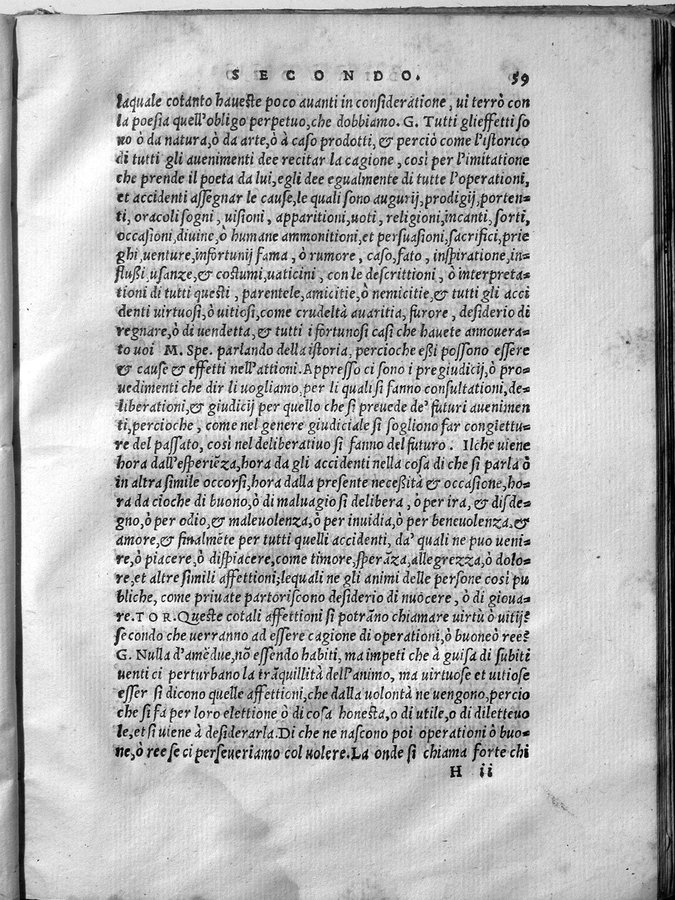 SECONDO. 59
laquale cotanto haueste poco auanti in consideratione, ui terrò con
la poesia quell'obligo perpetuo, che dobbiamo. G. Tutti glieffetti so
no ò da natura, ò da arte, ò à caso prodotti, & perciò come l'istorico
di tutti gli auenimenti dee recitar la cagione, così per l'imitatione
che prende il poeta da lui, egli dee egualmente di tutte l'operationi,
et accidenti assegnar le cause, le quali sono augurij, prodigij, porten-
ti, oracoli sogni, uisioni, apparitioni, uoti, religioni, incanti, sorti,
occasioni, diuine, ò humane ammonitioni, et persuasioni, sacrifici, prie
ghi, uenture, infortunij fama, ò rumore, caso, fato, inspiratione, in-
flussi, usanze, & costumi, uaticini, con le descrittioni, ò interpreta-
tioni di tutti questi, parentele, amicitie, ò nemicitie, & tutti gli acci
denti uirtuosi, ò uitiosi, come crudeltà auaritia, furore, desiderio di
regnare, ò di uendetta, & tutti i fortunosi casi che hauete annouera-
to uoi M. Spe. parlando della istoria, percioche essi possono essere
& cause & effetti nell'attioni. Appresso ci sono i pregiudicij, ò pro-
uedimenti che dir li uogliamo, per li quali si fanno consultationi, de-
liberationi, & giudicij per quello che si preuede de' futuri auenimen
ti, percioche, come nel genere giudiciale si sogliono far congiettu-
re del passato, così nel deliberatiuo si fanno del futuro. Ilche uiene
hora dall'esperiẽza, hora da gli accidenti nella cosa di che si parla ò
in altra simile occorsi, hora dalla presente necessità & occasione, ho-
ra da cioche di buono, ò di maluagio si delibera, ò per ira, & disde-
gno, ò per odio, & maleuolenza, ò per inuidia, ò per beneuolenza, &
amore, & finalmẽte per tutti quelli accidenti, da' quali ne puo ueni-
re, ò piacere, ò dispiacere, come timore, sperãza, allegrezza, ò dolo-
re, et altre simili affettioni; lequali ne gli animi delle persone così pu
bliche, come priuate partoriscono desiderio di nuocere, ò di gioua-
re. TOR. Queste cotali affettioni si potrãno chiamare uirtù ò uitij?
secondo che uerranno ad essere cagione di operationi, ò buone ò ree?
G. Nulla d'amẽdue, nõ essendo habiti, ma impeti che à guisa di subiti
uenti ci perturbano la trãquillità dell'animo, ma uirtuose et uitiose
esser si dicono quelle affettioni, che dalla uolontà ne uengono, percio
che si fa per loro elettione ò di cosa honesta, o di utile, o di diletteuo
le, et si uiene à desiderarla. Di che ne nascono poi operationi ò buo-
ne, ò ree se ci perseueriamo col uolere. La onde si chiama forte chi
H ii